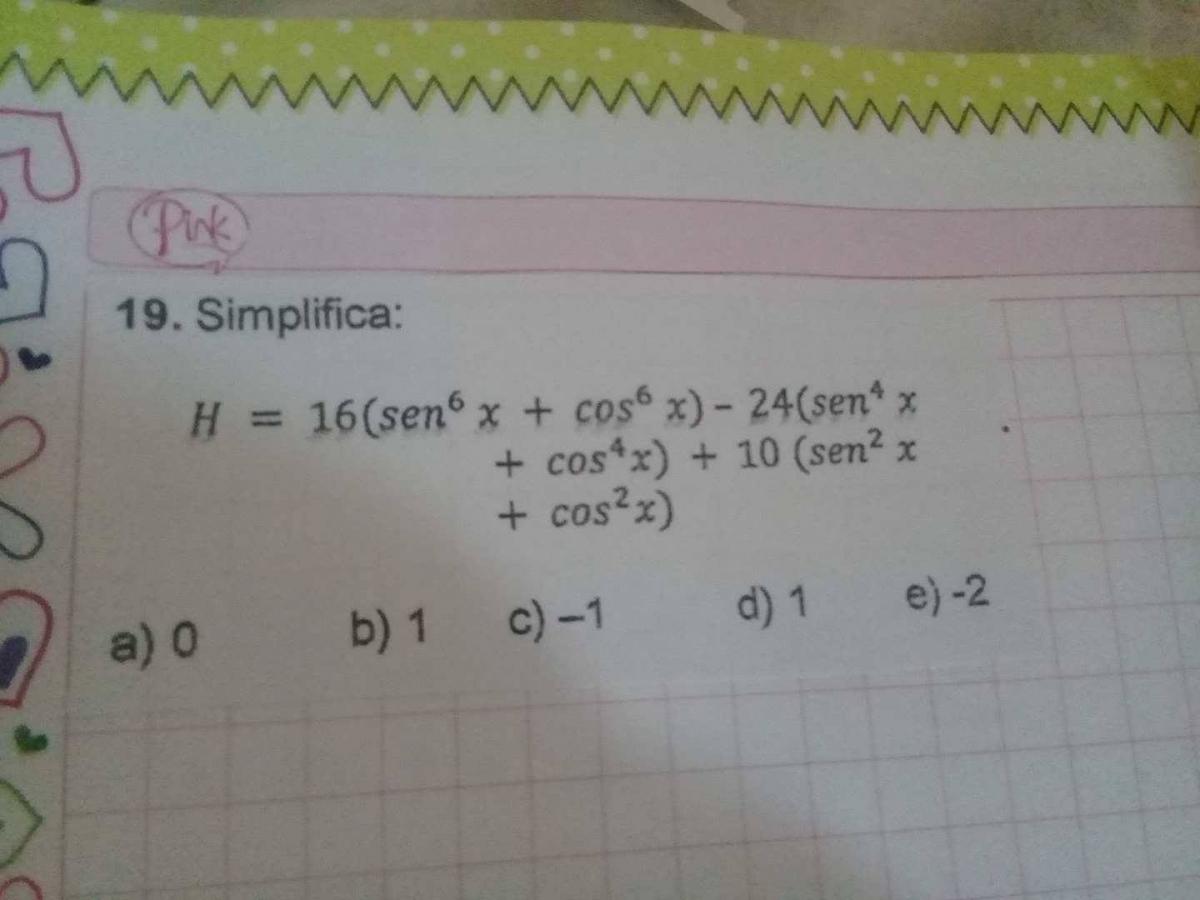 Pink
19. Simplifica:
H = 16(sen⁶ x + cos⁶ x) – 24(sen⁴ x
+ cos⁴x) + 10 (sen² x
+ cos²x)
a) 0 b) 1 c) –1 d) 1 e) -2